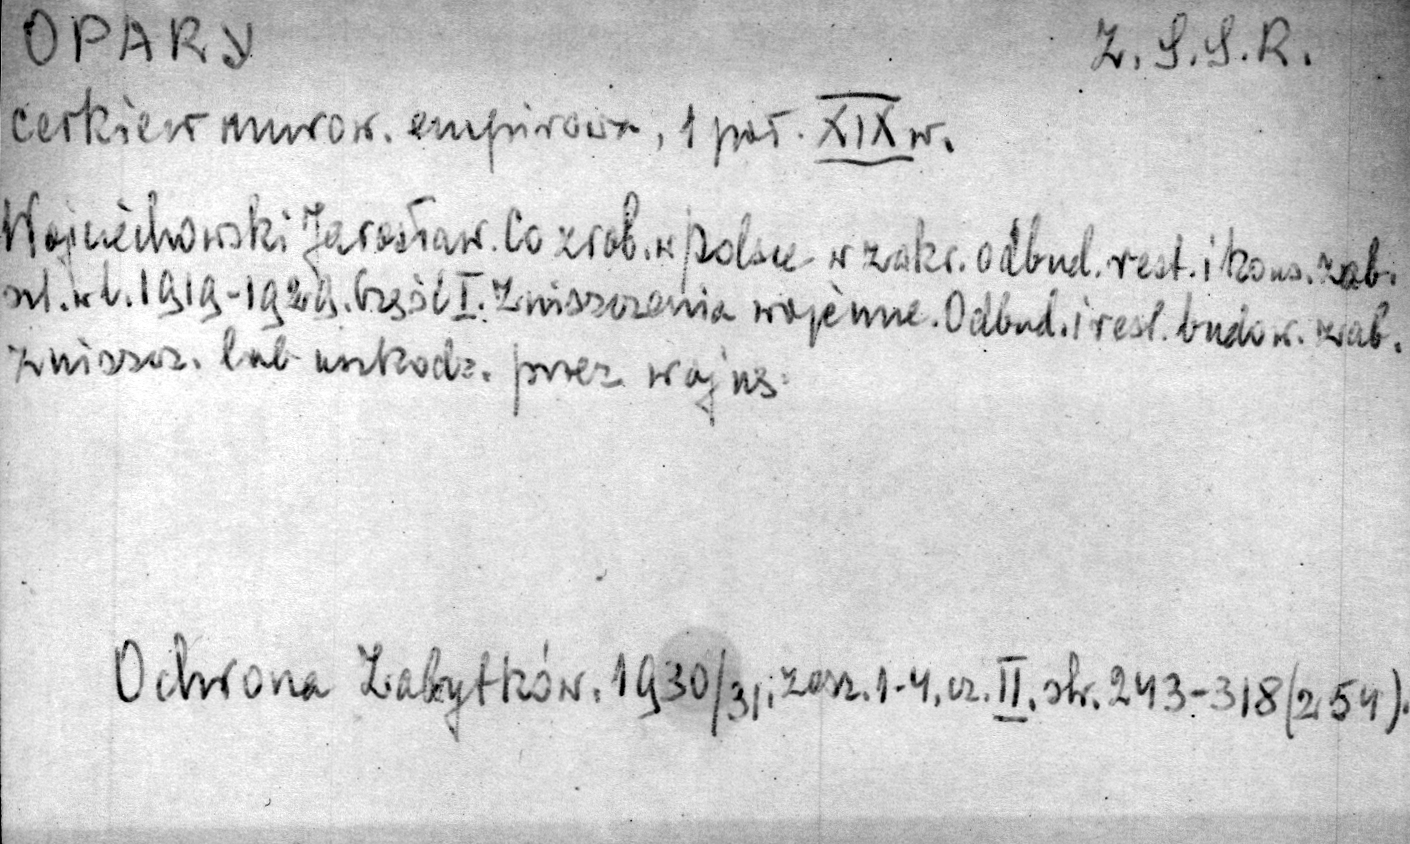 OPARY Z.S.S.R.
cerkiew murow. empirowa, 1 poł. XIX w.
Wojciechowski Jarosław. Co zrob. w Polsce w zakr. odbud. rest. i kons. zab.
szt. w l. 1919-1929. Część I. Zniszczenia wojenne. Odbud. i rest. budow. zab.
zniszcz. lub uszkodz. przez wojnę.
Ochrona Zabytków. 1930/31, zesz. 1-4, cz. II. str. 243-318 (254).